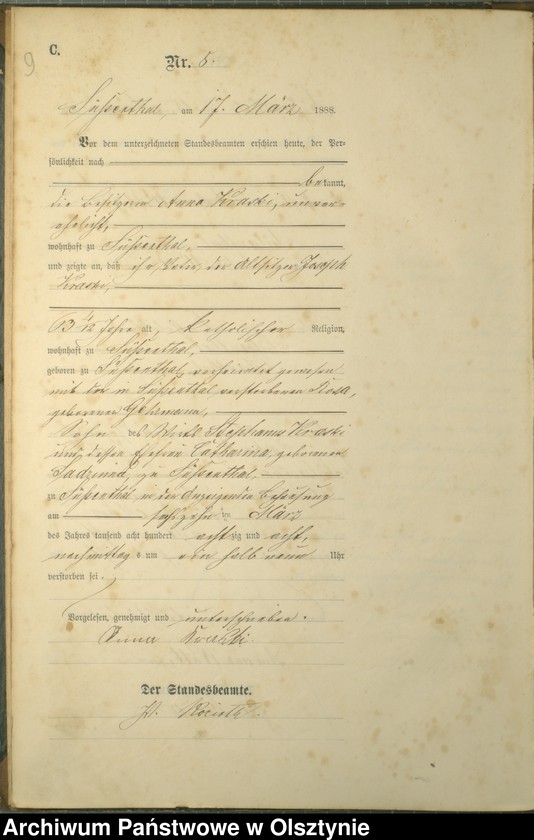 9
C.
Nr. 5.
Süssenthal, am 17. März 1888.
Vor dem unterzeichneten Standesbeamten erschien heute, der Per-
sönlichkeit nach
bekannt,
die Besitzerin Anna Kraski, unver-
ehelicht,
wohnhaft zu Süssenthal,
und zeigte an, daß ihr Vater, der Altsitzer Joseph
Kraski,
Jahre alt, katholischer Religion,
wohnhaft zu Süssenthal,
geboren zu Süssenthal, verheiratet gewesen
mit der in Süssenthal verstorbenen Rosa,
geborenen Gehrmann,
Sohn des Wirts Stephanus Kraski
und dessen Ehefrau Catharina, geborenen
zu Süssenthal
zu Süssenthal in der Anzeigenden Behausung
am sechszehn ten März
des Jahres tausend acht hundert achtzig und acht,
nachmittags um ein halb neun Uhr
verstorben sei.
Vorgelesen, genehmigt und unterschrieben.
Anna Kraski
Der Standesbeamte.
Archiwum Państwowe w Olsztynie